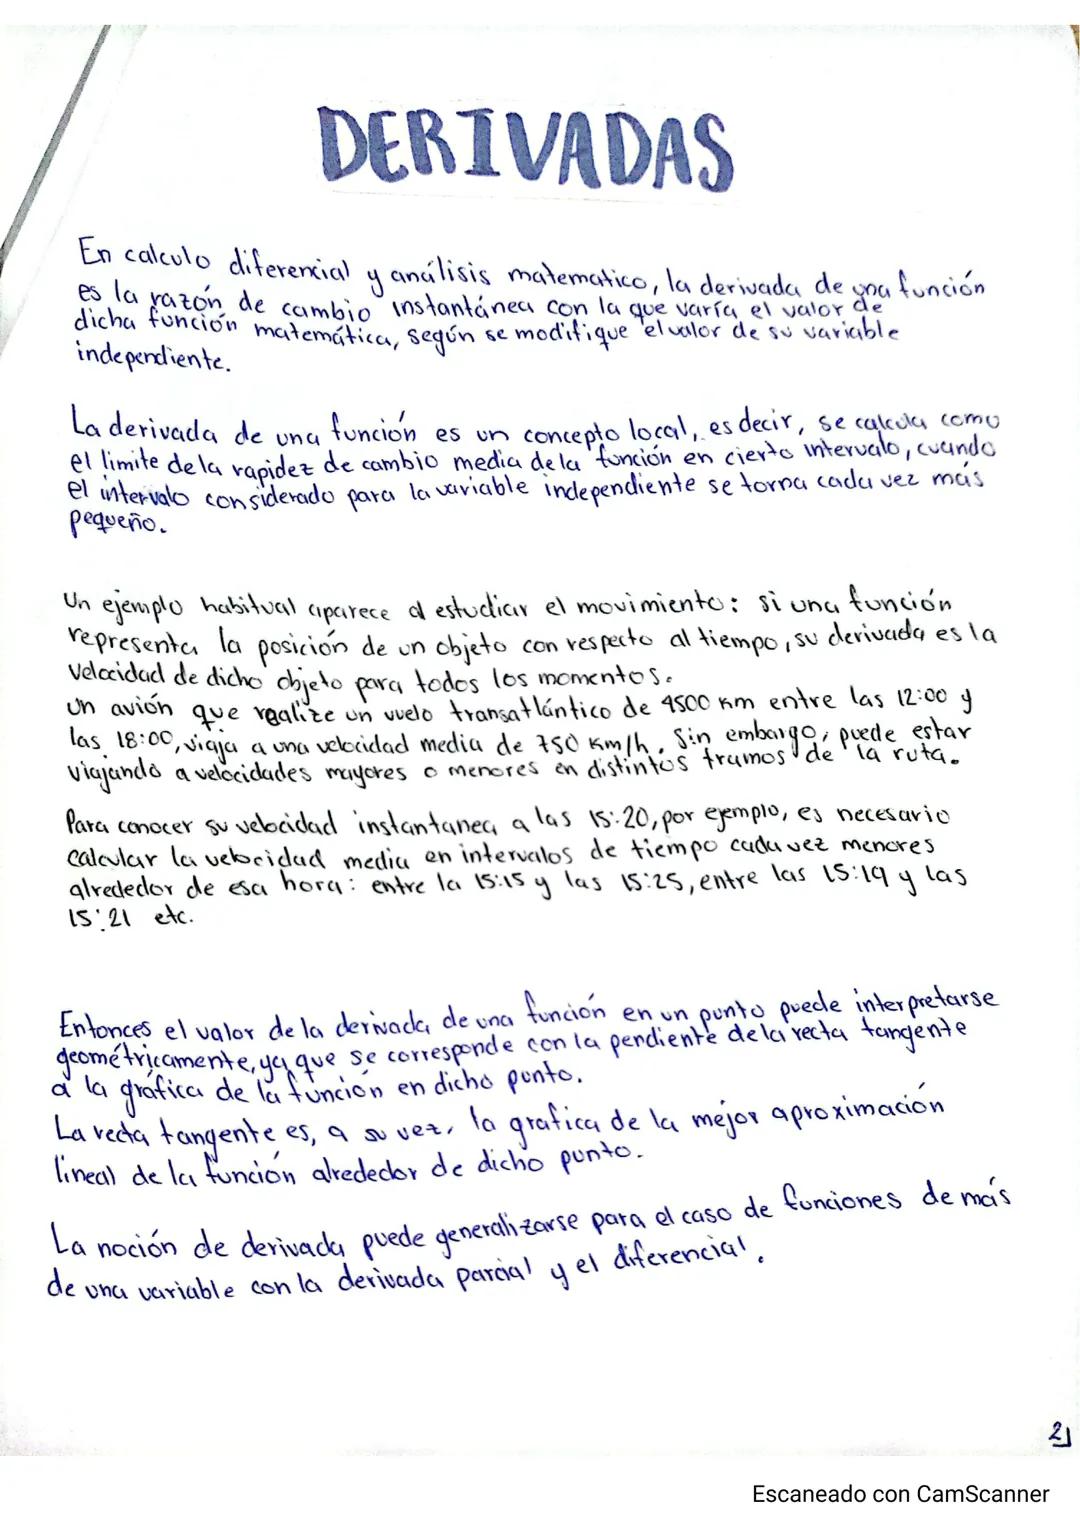 DERIVADAS
En calculo diferencial y análisis matematico, la derivada de una función
es la razón de cambio instantánea con la que varía el valor de
dicha función matemática, según se modifique el valor de su variable
independiente.
La derivada de una función es un concepto local, es decir, se calcula como
el limite de la rapidez de cambio media de la función en cierto intervalo, cuando
el intervalo considerado para la variable independiente se torna cada vez más
pequeño.
Un ejemplo habitual aparece al estudiar el movimiento: si una función
representa la posición de un objeto con respecto al tiempo, su derivada es la
velocidad de dicho objeto para todos los momentos.
Un avión que realize un vuelo transatlántico de 4500 km entre las 12:00 y
las 18:00, viaja a una velocidad media de 750 km/h. Sin embargo, puede estar
viajando a velocidades mayores o menores en distintos tramos de la ruta.
Para conocer su velocidad instantanea a las 15:20, por ejemplo, es necesario
calcular la velocidad media en intervalos de tiempo cada vez menores
alrededor de esa hora: entre la 15:15 y las 15:25, entre las 15:19 y las
15:21 etc.
Entonces el valor de la derivada de una función en un punto puede interpretarse
geométricamente, ya que se corresponde con la pendiente de la recta tangente
a la gráfica de la función en dicho punto.
La recta tangente es, a su vez, la grafica de la mejor aproximación
lineal de la función alrededor de dicho punto.
La noción de derivada puede generalizarse para el caso de funciones de más
de una variable con la derivada parcial y el diferencial.
2
Escaneado con CamScanner